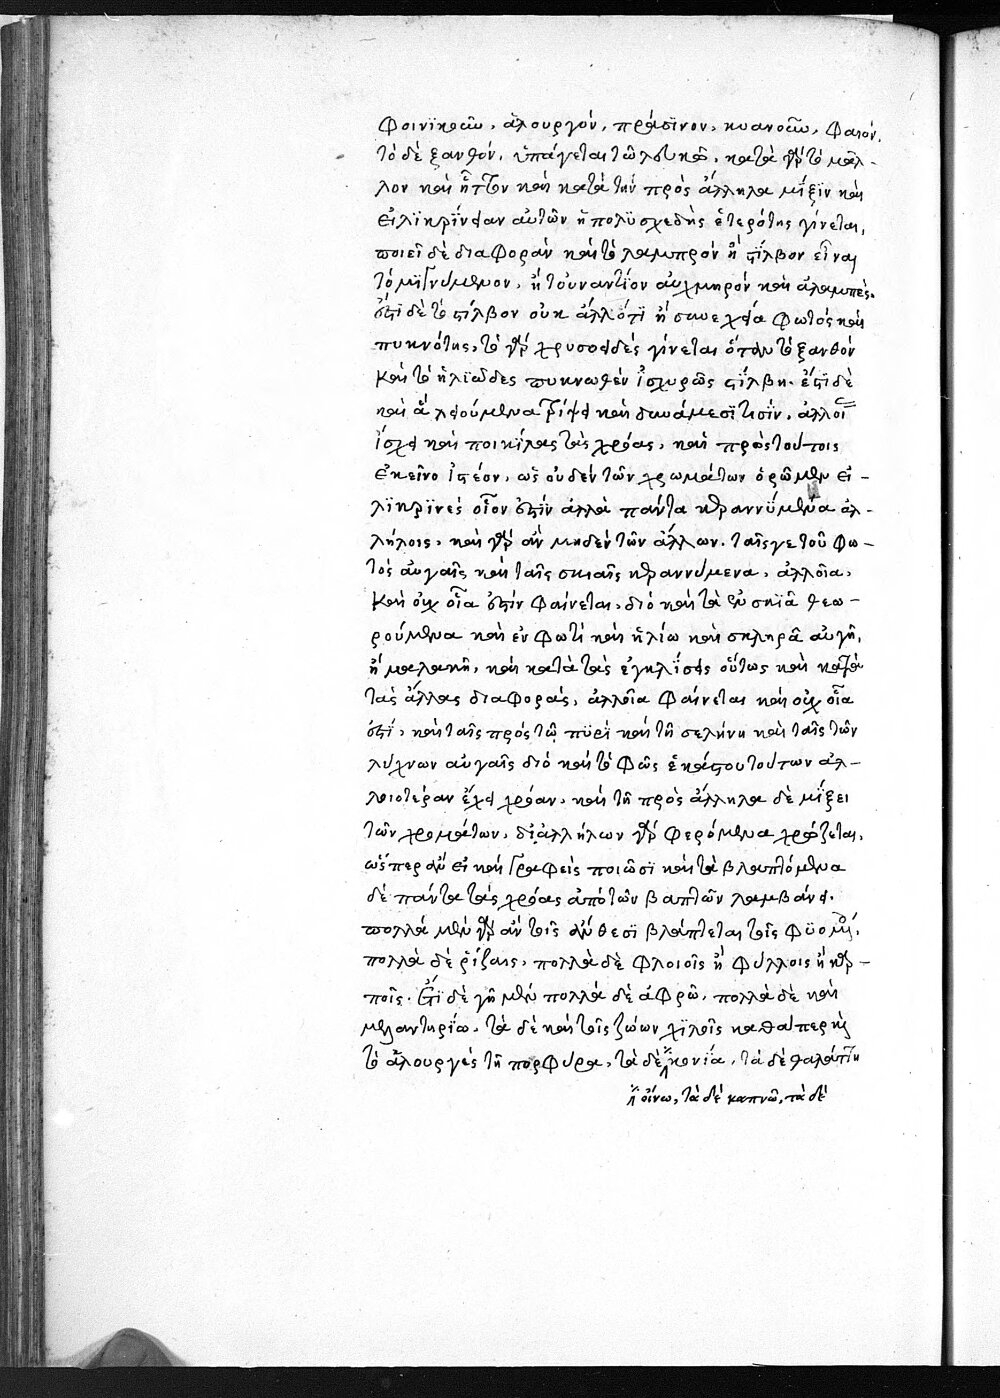 φοινϊκοῦν, ἁλουργόν, πράσϊνον, κυανοῦν, φαιόν,
τὸ δὲ ξανθόν, ὑπάγεται τῶ λευκῶ, κατὰ γὰρ τὸ μᾶλ-
λον καὶ ἧττον καὶ κατὰ τὴν πρὸς ἄλληλα μῖξϊν καὶ
εἰλϊκρΐνειαν αὐτῶν ἡ πολϋσχεδὴς ἑτερότης γίνεται,
ποιεῖ δὲ διαφορὰν καὶ τὸ λαμπρὸν ἢ στΐλβον εἶναι
τὸ μϊγνύμενον, ἢ τοὐναντΐον αὐχμηρὸν καὶ ἀλαμπές.
ἔστϊ δὲ τὸ στΐλβον οὐκ ἄλλό τϊ ἢ συνεχεία φωτὸς καὶ
πυκνότης, τὸ γὰρ χρυσοειδὲς γίνεται ὅταν τὸ ξανθὸν
καὶ τὸ ἡλιῶδες πυκνωθὲν ἰσχυρῶς στΐλβη. ἔστϊ δὲ
καὶ ἃ λειούμενα τρίψει καὶ δυνάμεσΐ τισΐν, ἀλλοῖ
ἴσχει καὶ ποικίλας τὰς χρόας, καὶ πρὸς τούτοις
ἐκεῖνο ἰστέον, ὡς οὐδὲν τῶν χρωμάτων ὁρῶμεν εἰ-
λϊκρϊνὲς οἷον ἐστϊν ἀλλὰ πάντα κεραννΰμενα ἀλ-
λήλοις, καὶ γὰρ ἂν μηδενὶ τῶν ἄλλων. ταῖς γε τοῦ φω-
τὸς αὐγαῖς καὶ ταῖς σκιαῖς κεραννύμενα, ἀλλοῖα,
καὶ οὐχ οἷα ἐστϊν φαίνεται, διὸ καὶ τὰ ἐν σκϊᾶ θεω-
ρούμενα καὶ ἐν φωτὶ καὶ ἡλίω καὶ σκληρᾶ αὐγῆ,
ἢ μαλακῆ, καὶ κατὰ τὰς ἐγκλΐσεις οὕτως καὶ κατὰ
τὰς ἄλλας διαφοράς, ἀλλοῖα φαίνεται καὶ οὐχ οἷα
ἐστΐ, καὶ ταῖς πρὸς τῶ πϋρὶ καὶ τῆ σελήνη καὶ ταῖς τῶν
λύχνων αὐγαῖς διὸ καὶ τὸ φῶς ἑκάστου τούτων ἀλ-
λοιοτέραν ἔχει χρόαν, καὶ τῆ πρὸς ἄλληλα δὲ μΐξει
τῶν χρωμάτων, δι' ἀλλήλων γὰρ φερόμενα χρώζεται,
ὥσπερ ἂν εἰ καὶ γραφεῖς ποιῶσϊ καὶ τὰ βλαπτόμενα
δὲ πάντα τὰς χρόας ἀπὸ τῶν βαπτῶν λαμβάνει.
πολλὰ μὲν γὰρ ἂν τοῖς ἄνθεσϊ βλάπτεται τοῖς φϋομένοις,
πολλὰ δὲ ῥίζαις, πολλὰ δὲ φλοιοῖς ἢ φύλλοις ἢ καρ-
ποῖς. ἔτϊ δὲ γῆ μὲν πολλὰ δὲ ἀφρῶ, πολλὰ δὲ καὶ
μελαντηρίω, τὰ δὲ καὶ τοῖς ζώων χϊλοῖς καθάπερ καὶ
τὸ ἁλουργὲς τῆ πορφύρα, τὰ δὲ κονΐα, τὰ δὲ θαλάττη
οἴνω, τὰ δὲ καπνῶ, τὰ δὲ